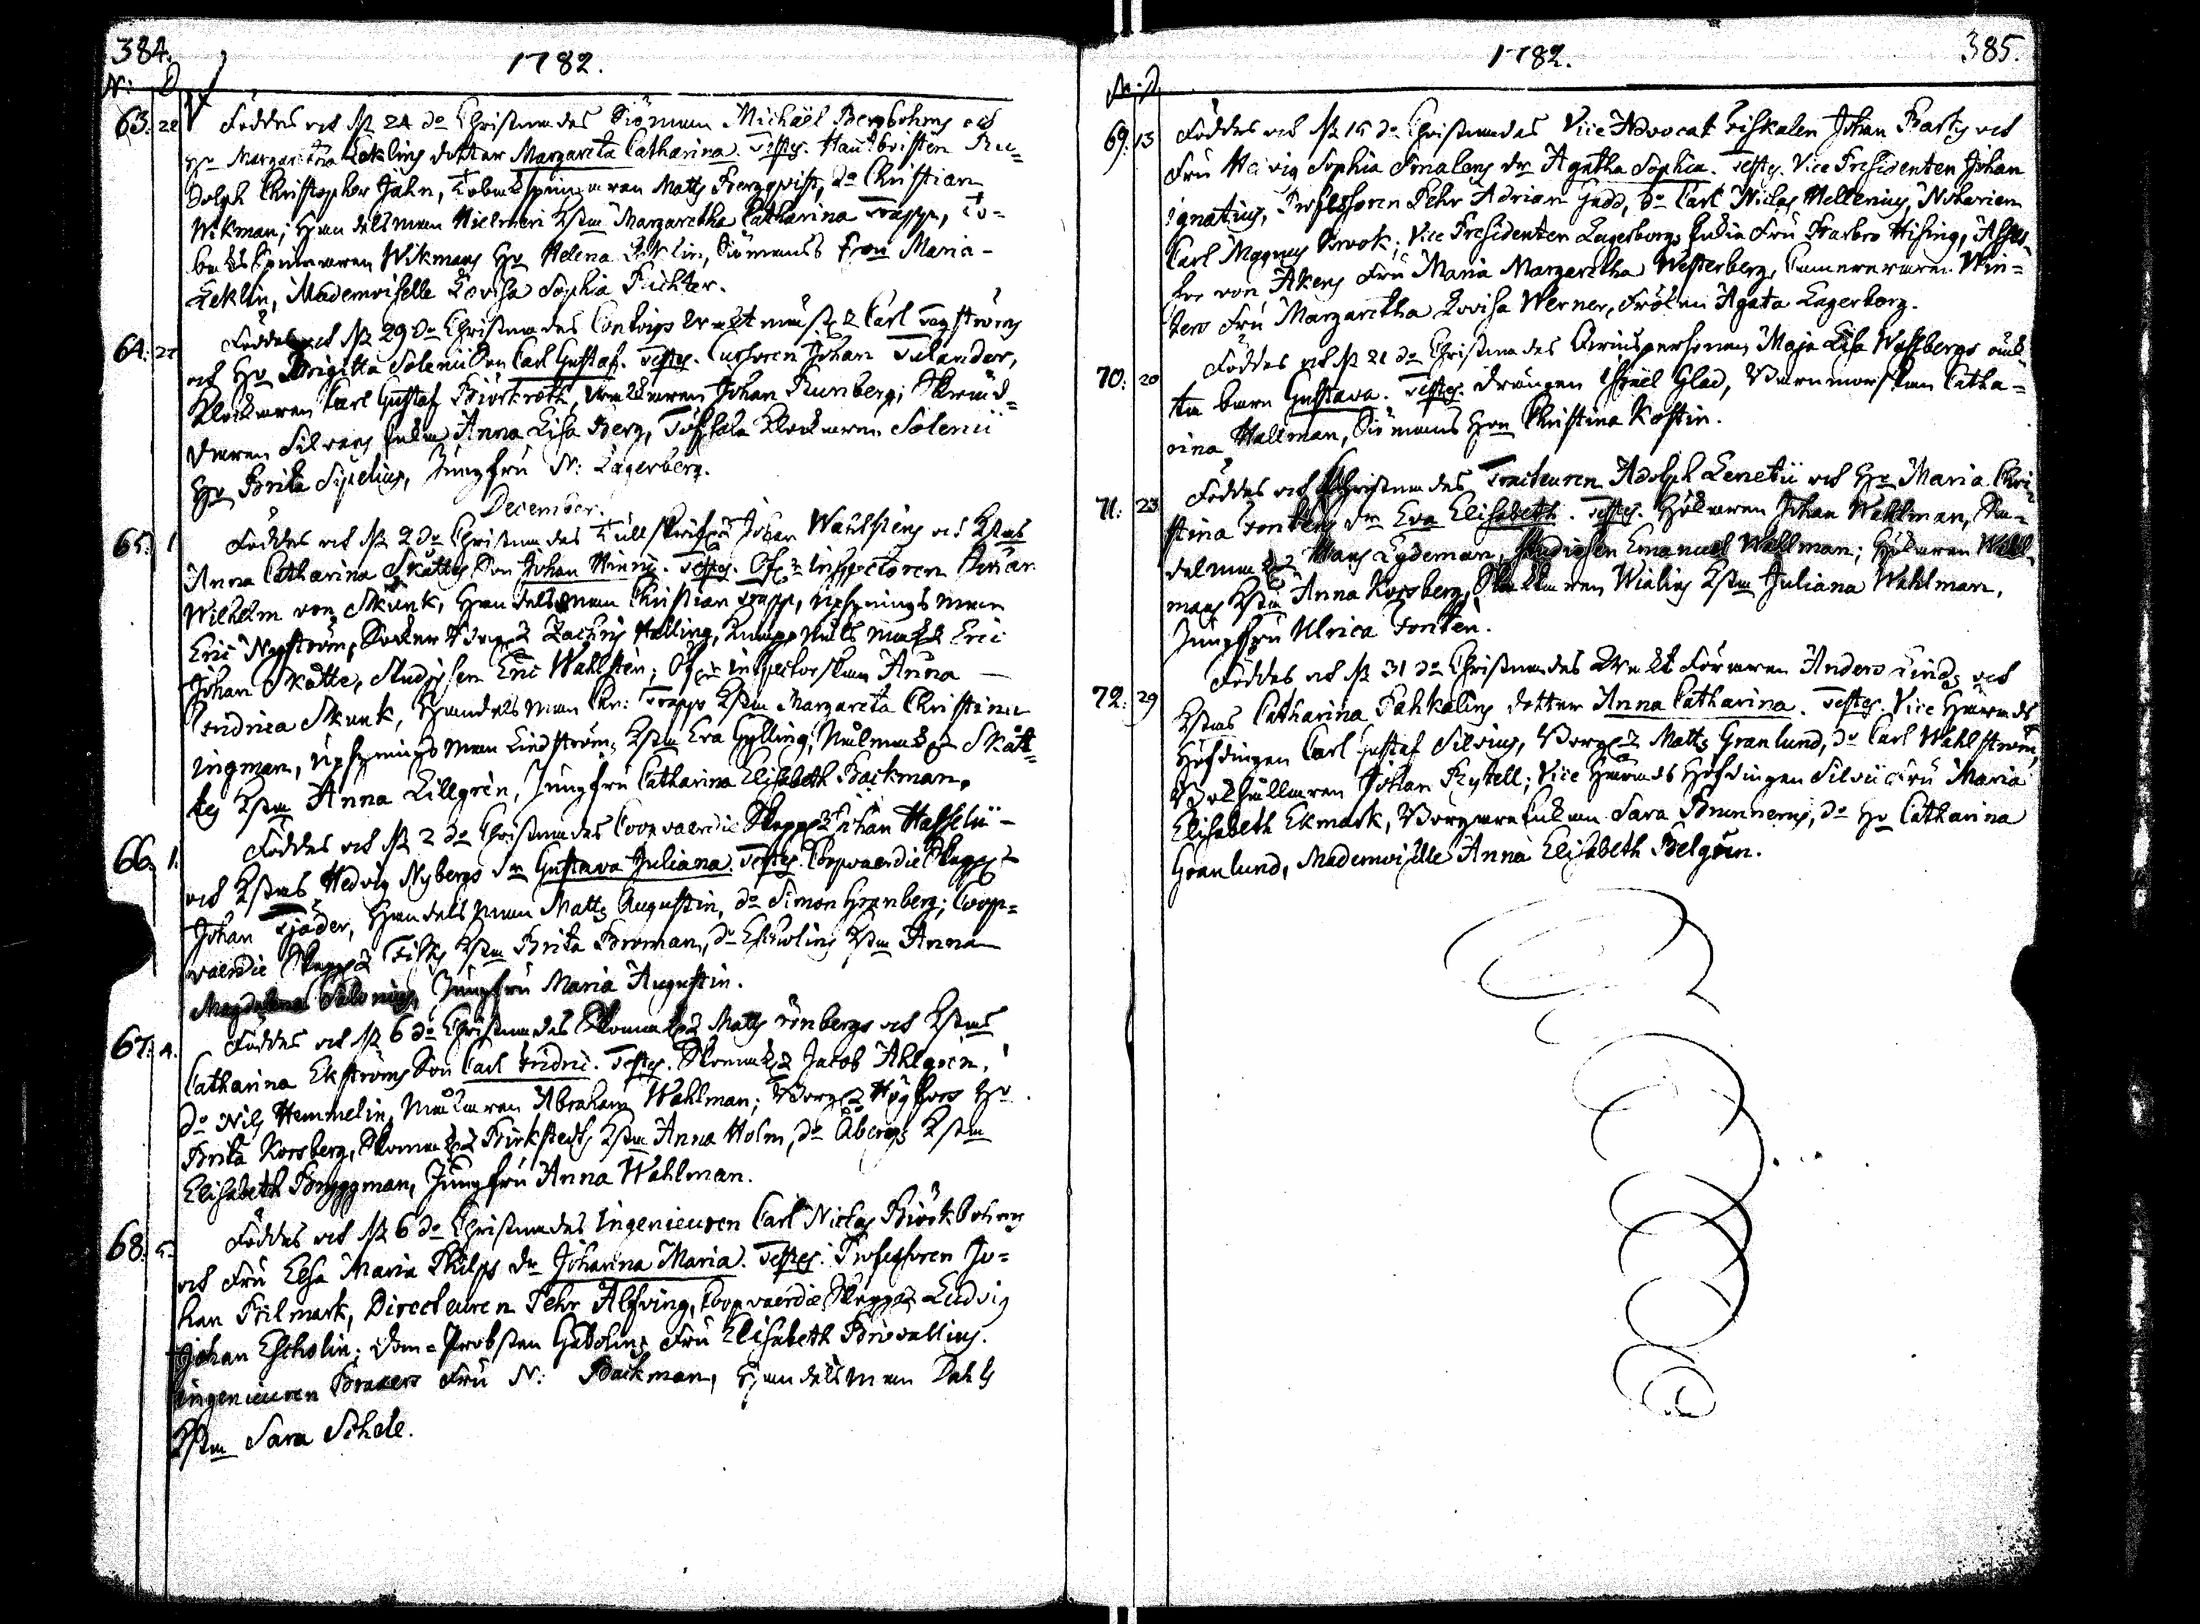 384.
1782.
N: D
63. 22 Föddes och Np 24 do Christnades Siöman Michaël Bergbohms och
Ho Margaretha Leklins dotter Margareta Catharina. Testes. Hautboisten Ru=
dolph Christopher Jahn, Tobackspinnaren Matts Bergqvist, do Christian
Wikman; Handelsman Hielmeri Hstru Margaretha Catharina Trapp, To=
backspinnaren Wikmans Ho Helena Leklin, Siömans frou Maria
Leklin, Mademoiselle Lovisa Sophia Richter.
64. 27 Föddes och Np 29 do Christnades Contoirs Carl Tag ströms
och Ho Brigitta Solenii Son Carl Gustaf. Testes. Cursoren Johan Tulander,
Klockaren Carl Gustaf Biörkroth, Johan Runberg;
Silvans Enka Anna Lisa Berg, Töfsala Klockaren Solenii
Ho Brita Sipelius, Jungfru N: Lagerberg.
December.
65. 1 Föddes och Np 2 do Christnades Tullskrif: Johan Wahlstens och Hstrus
Anna Catharina Skåttes Son Johan Hinric. Testes. Öf: Inspectoren
Wilhelm von Skunk, Handelsman Christian Trapp, Upsyningsman
Eric Nyström, Zachris Hælling, Eric
Johan Skåtte, Studiosen Eric Wahlsten; Öf: Inspectorskan Anna
Fredrica Skunk, Handelsman Chr: Trapps Hstru Margareta Christina
Ingman, Upsyningsman Lindströms Hstru Eva Gylling, Skåt=
tes Hstru Anna Lillgren, Jungfru Catharina Elisabeth Backman.
66. 1. Föddes och Np 2 do Christnades Coopvaerdie Skepp: Johan Hasselii
och Hstrus Hedvig Nybergs dr Gustava Juliana. Testes. Coopvaerdie Skepp:
Johan Tjäder, Handelsman Matts Augustin, do Simon Grenberg; Coop=
vaerdie Skepp: Fisks Hstru Brita Broman, do Escholins Hstru Anna
Magdalena Salonius, Jungfru Maria Augustin.
67. 4. Föddes och Np 6 do Christnades Skomak: Matts rönbergs och Hstrus
Catharina Ekströms Son Carl Fridric. Testes. Skomak: Jacob Ahlgren,
do Nils Hemmelin, Målaren Abraham Wahlman; Borg: Högfors Ho
Brita Korsberg, Skomak: Birkstedts Hstru Anna Holm, do Åbergs Hstru
Elisabeth Bryggman, Jungfru Anna Wahlman.
68. 5. Föddes och Np 6 do Christnades Ingenieuren Carl Niclas Biörkbohms
och Fru Elsa Maria Philps dr Johanna Maria. Testes. Professoren Jo=
han Bilmark, Directeuren Pehr Alfving, Coopvaerdie Skepp: Ludvig
Johan Escholin; Dom=Probsten Gadolins Fru Elisabeth Browallius.
Ingenieuren Braxers Fru N: Backman, Handelsman Dahls
Hstru Sara Schele.
1782.
385.
N: D
69. 13 Föddes och Np 15 do Christnades Vice Advocat Fiskalen Johan Barks och
Fru Hedvig Sophia Smalens dr Agatha Sophia. Testes. Vice Presidenten Johan
Ignatius, Professoren Pehr Adrian Gadd, do Carl Niclas Hellenius, Notarien
Carl Magnus Brook; Vice Presidenten Lagerborgs Enkia Fru Barbro Hising, Asses=
sor von Akens Fru Maria Margaretha Westerberg, Camereraren Win=
ters Fru Margaretha Lovisa Werner, Fröken Agata Lagerborg.
70. 20 Föddes och Np 21 do Christnades Qvinspersonen Maja Lisa Wassbergs oäck=
ta barn Gustava. Testes. Drängen Israël Glad, Barnmorskan Catha=
rina Hallman, Siömans Hru Christina Kostin.
71. 23 Föddes och Christnades Tracteuren Adolph Lenetii och Ho Maria Chri=
stina Fontens dr Eva Elisabeth. Testes. Hökaren Johan Wahlman, Sa=
delmak: Hans Lydeman, Studiosen Emanuel Wahlman; Hökaren Wahl=
mans Hstru Anna Korsberg, Wialins Hstru Juliana Wahlman,
Jungfru Ulrica Fonten.
72. 29 Föddes och Np 31 do Christnades Anders Linds och
Hstrus Catharina Pahkalins dotter Anna Catharina. Testes. Vice Härads
Höfdingen Carl Gustaf Silvius, Borg: Matts Granlund, do Carl Wahlström,
Bokhållaren Johan Frytell; Vice Härads Höfdingen Silvii Fru Maria
Elisabeth Ekmark, Borgare Enkan Sara Brunnerus, do Ho Catharina
Granlund, Mademoiselle Anna Elisabeth Belgren.